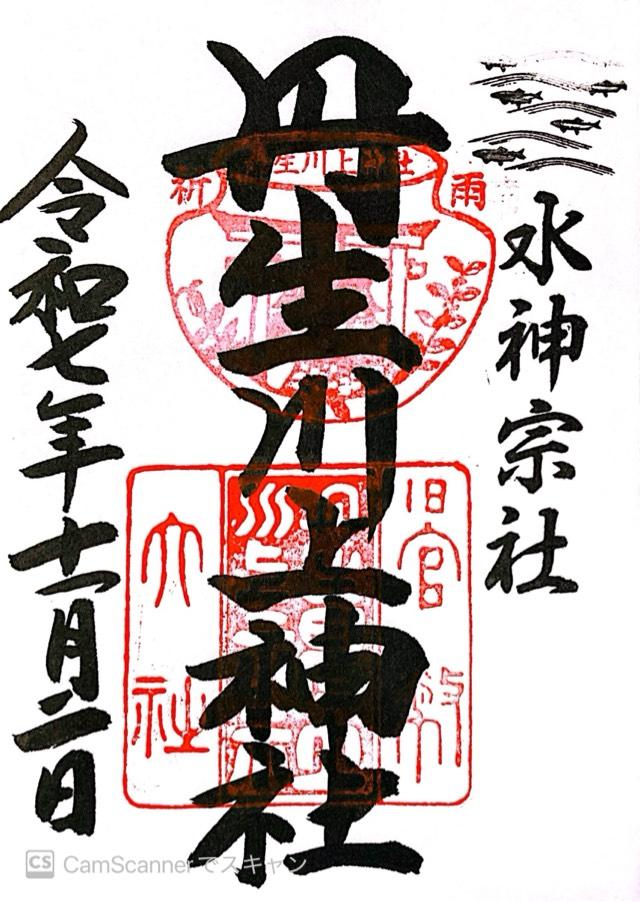 水神宗社
丹生川上神社
令和七年十一月二日
生川上神社
祈
雨
旧官幣
大社
CS CamScannerでスキャン